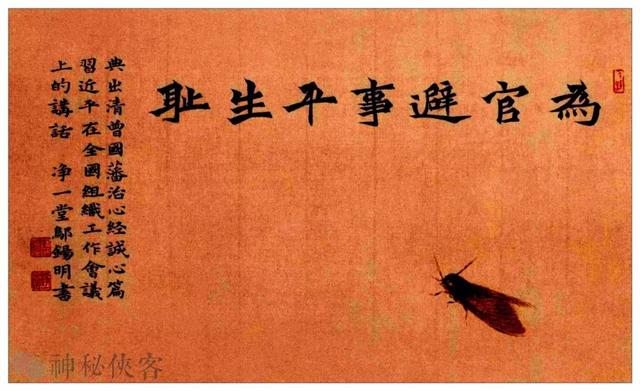 為官避事平生耻
典出清曾國藩治心經誠心篇
習近平在全國組織工作會議
上的講話 净一堂鄔錫明書
神秘俠客